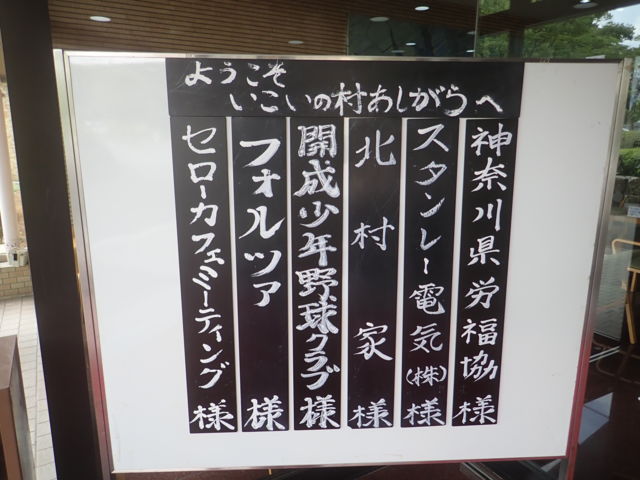 ようこそ
いこいの村あしがらへ
神奈川県労福協様
スタンレー電気(株)様
北村家様
開成少年野球クラブ様
フォルツァ様
セローカフェミーティング様